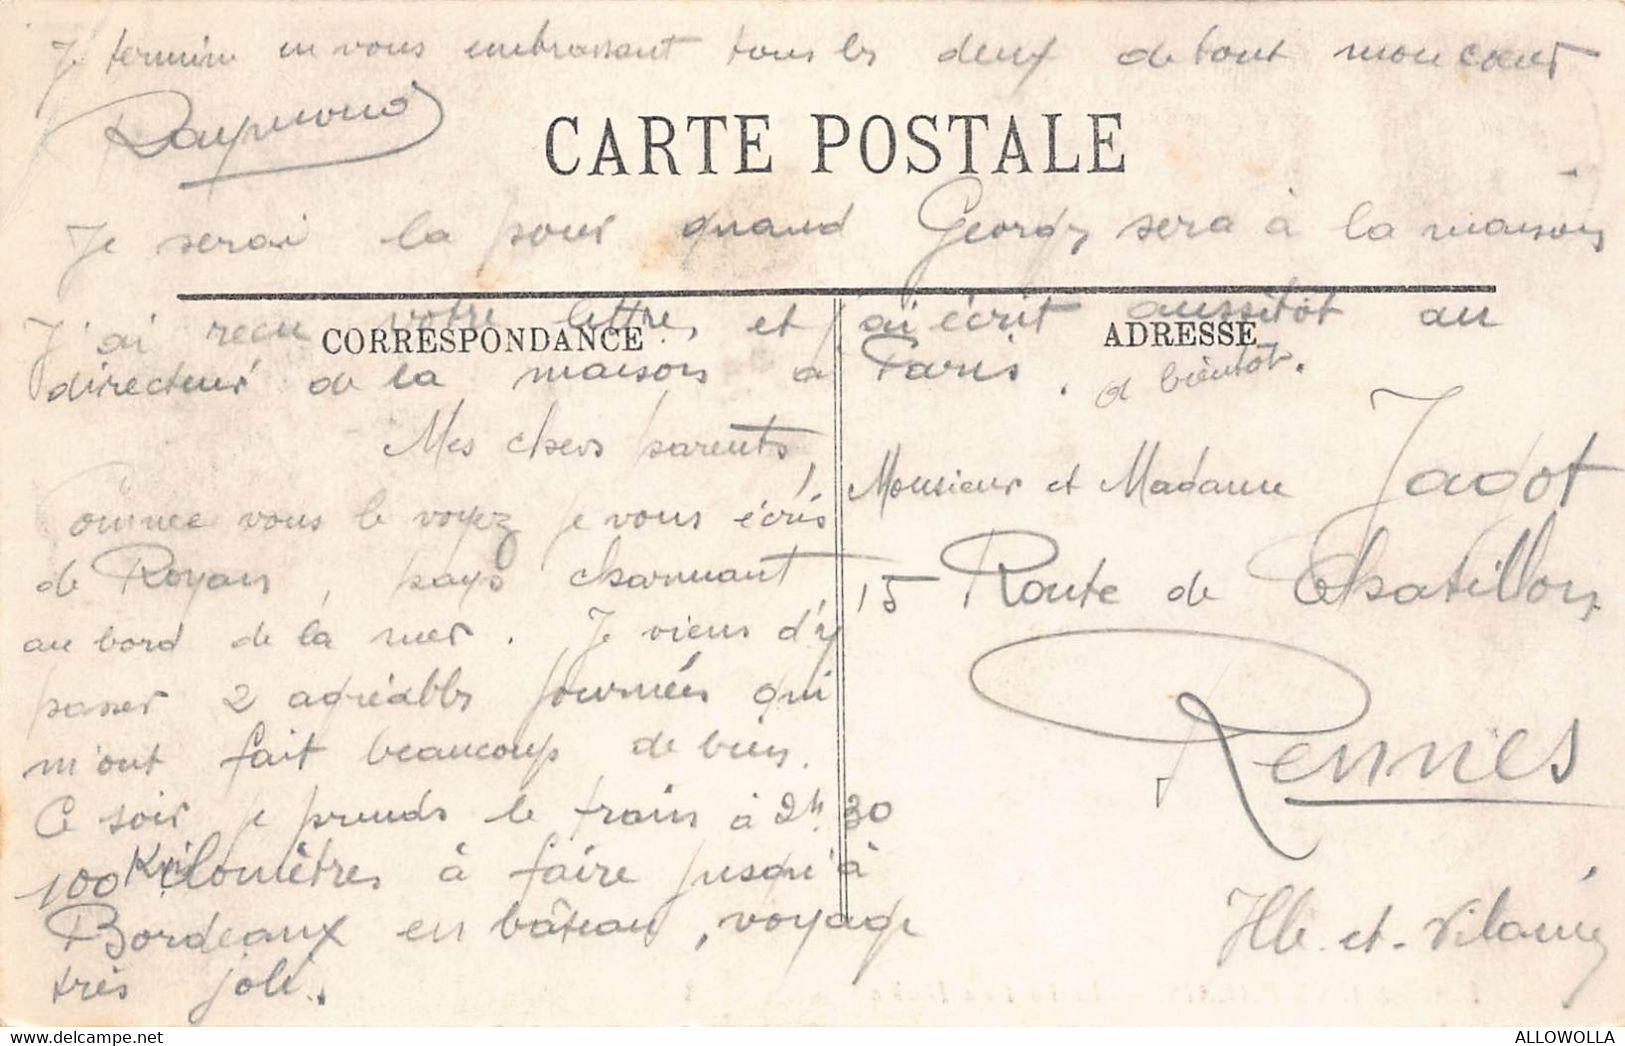 Je termine en vous embrassant tous les deux de tout mon cœur
Raymond
CARTE POSTALE
Je serai la pour quand Georgy sera à la maison
J'ai recu votre lettre, et j'ai écrit aussitôt au
CORRESPONDANCE
ADRESSE
directeur de la maison à Paris. à bientôt.
Mes chers parents,
Comme vous le voyez je vous écris
de Royan, pays charmant,
au bord de la mer. Je viens d'y
passer 2 agréables journées qui
m'ont fait beaucoup de bien.
Ce soir je prends le train à 2h.30
100 Kilomètres à faire jusqu'à
Bordeaux en bâteau, voyage
très joli.
Monsieur et Madame Jadot
15 Route de Chatillon
Rennes
Ille-et-Vilaine
ALLOWOLLA